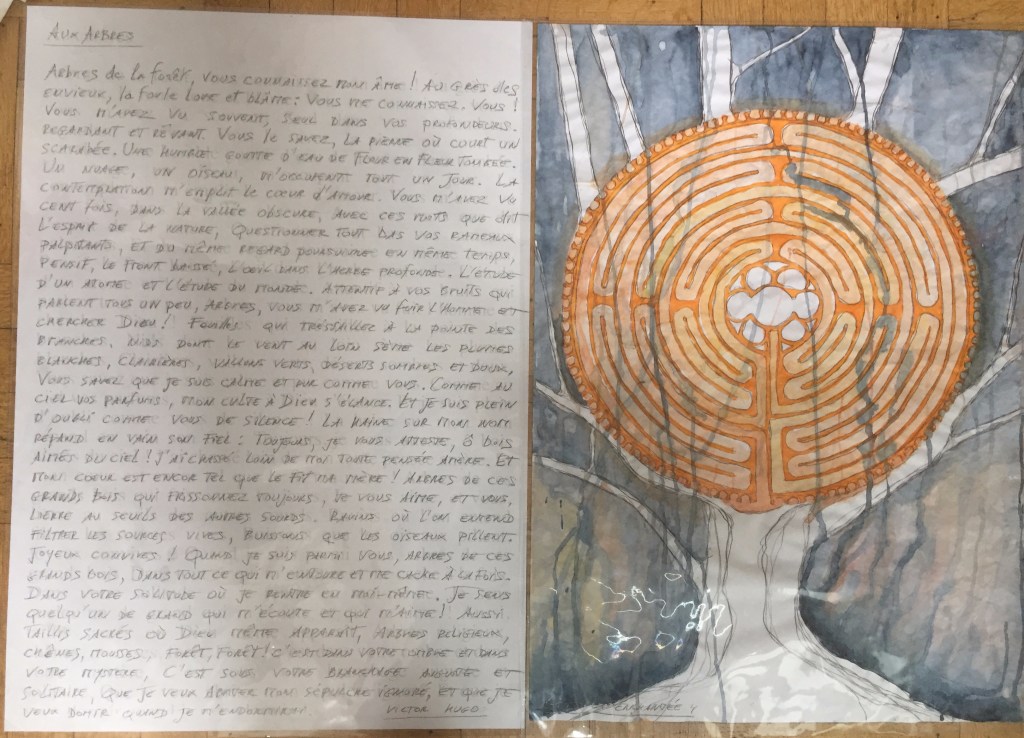 AUX ARBRES
ARBRES de la forêt, vous connaissez mon âme! Au grès des
envieux, la foule loue et blâme: vous me connaissez. Vous!
Vous m'avez vu souvent, seul dans vos profondeurs.
Regardant et rêvant. Vous le savez, la pierre où court un
scarabée. Une humble goutte d'eau de fleur en fleur tombée.
Un nuage, un oiseau, m'occupent tout un jour. La
contemplation m'emplit le coeur d'amour. Vous m'avez vu
cent fois, dans la vallée obscure, avec ces mots que dit
l'esprit de la nature, questionner tout bas vos rameaux
palpitants, et du même regard poursuivre en même temps,
pensif, le front baissé, l'oeil dans l'herbe profonde. L'étude
d'un atome et l'étude du monde. Attentif à vos bruits qui
parlent tous un peu, arbres, vous m'avez vu fuir l'homme et
chercher Dieu! Feuilles qui tressaillez à la pointe des
branches, nids dont le vent au loin sème les plumes
blanches, clairières, vallons verts, déserts sombres et doux,
Vous savez que je suis calme et pur comme vous. Comme au
ciel vos parfums, mon culte à Dieu s'élance. Et je suis plein
d'oubli comme vous de silence! La haine sur mon nom
répand en vain son fiel: Toujours, je vous atteste, ô bois
aimés du ciel! J'ai chassé loin de moi toute pensée amère. Et
mon coeur est encor tel que le fit ma mère! Arbres de ces
grands bois qui frissonnez toujours, je vous aime, et vous,
lierre au seuils des autres sourds. Ravins où l'on entend
filtrer les sources vives, buissons que les oiseaux pillent.
Joyeux convives! Quand je suis parmi vous, arbres de ces
grands bois, dans tout ce qui m'entoure et me cache à la fois.
Dans votre solitude où je rentre en moi-même. Je sens
quelqu'un de grand qui m'écoute et qui m'aime! Aussi
taillis sacrés où Dieu même apparaît, arbres religieux,
chênes, mousses, forêt, forêt! C'est dans votre ombre et dans
votre mystère, c'est sous votre branchage auguste et
solitaire, que je veux abriter mon sépulcre ignoré, et que je
veux dormir quand je m'endormirai.
VICTOR HUGO